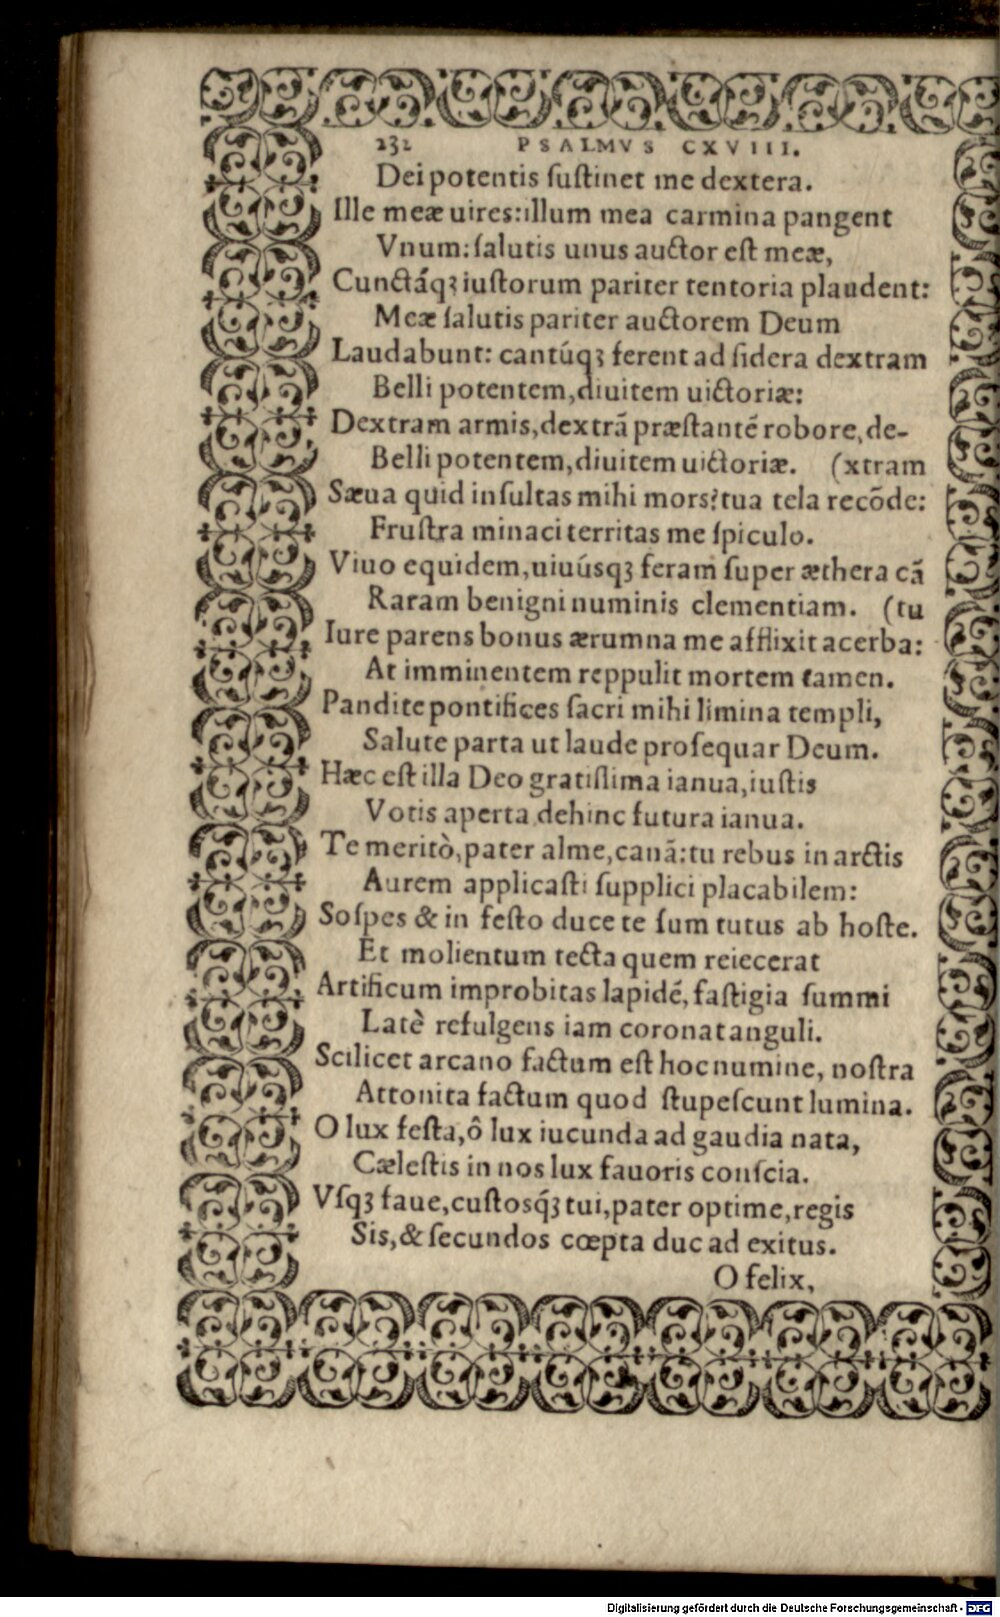 232 PSALMVS CXVIII.
Dei potentis ſuſtinet me dextera.
Ille meæ uires: illum mea carmina pangent
Vnum: ſalutis unus auctor eſt meæ,
Cunctáqꝫ iuſtorum pariter tentoria plaudent:
Meæ ſalutis pariter auctorem Deum
Laudabunt: cantúqꝫ ferent ad ſidera dextram
Belli potentem, diuitem uictoriæ:
Dextram armis, dextrā præſtantē robore, de-
Belli potentem, diuitem uictoriæ. (xtram
Sæua quid inſultas mihi mors? tua tela recōde:
Fruſtra minaci territas me ſpiculo.
Viuo equidem, uiuúsqꝫ feram ſuper æthera cā
Raram benigni numinis clementiam. (tu
Iure parens bonus ærumna me afflixit acerba:
At imminentem reppulit mortem tamen.
Pandite pontifices ſacri mihi limina templi,
Salute parta ut laude proſequar Deum.
Hæc eſt illa Deo gratiſſima ianua, iuſtis
Votis aperta dehinc futura ianua.
Te meritò, pater alme, canā: tu rebus in arctis
Aurem applicaſti ſupplici placabilem:
Soſpes & in feſto duce te ſum tutus ab hoſte.
Et molientum tecta quem reiecerat
Artificum improbitas lapidē, faſtigia ſummi
Latè refulgens iam coronat anguli.
Scilicet arcano factum eſt hoc numine, noſtra
Attonita factum quod ſtupeſcunt lumina.
O lux feſta, ô lux iucunda ad gaudia nata,
Cæleſtis in nos lux fauoris conſcia.
Vſqꝫ faue, cuſtosq́ꝫ tui, pater optime, regis
Sis, & ſecundos cœpta duc ad exitus.
O felix,
Digitalisierung gefördert durch die Deutsche Forschungsgemeinschaft - DFG